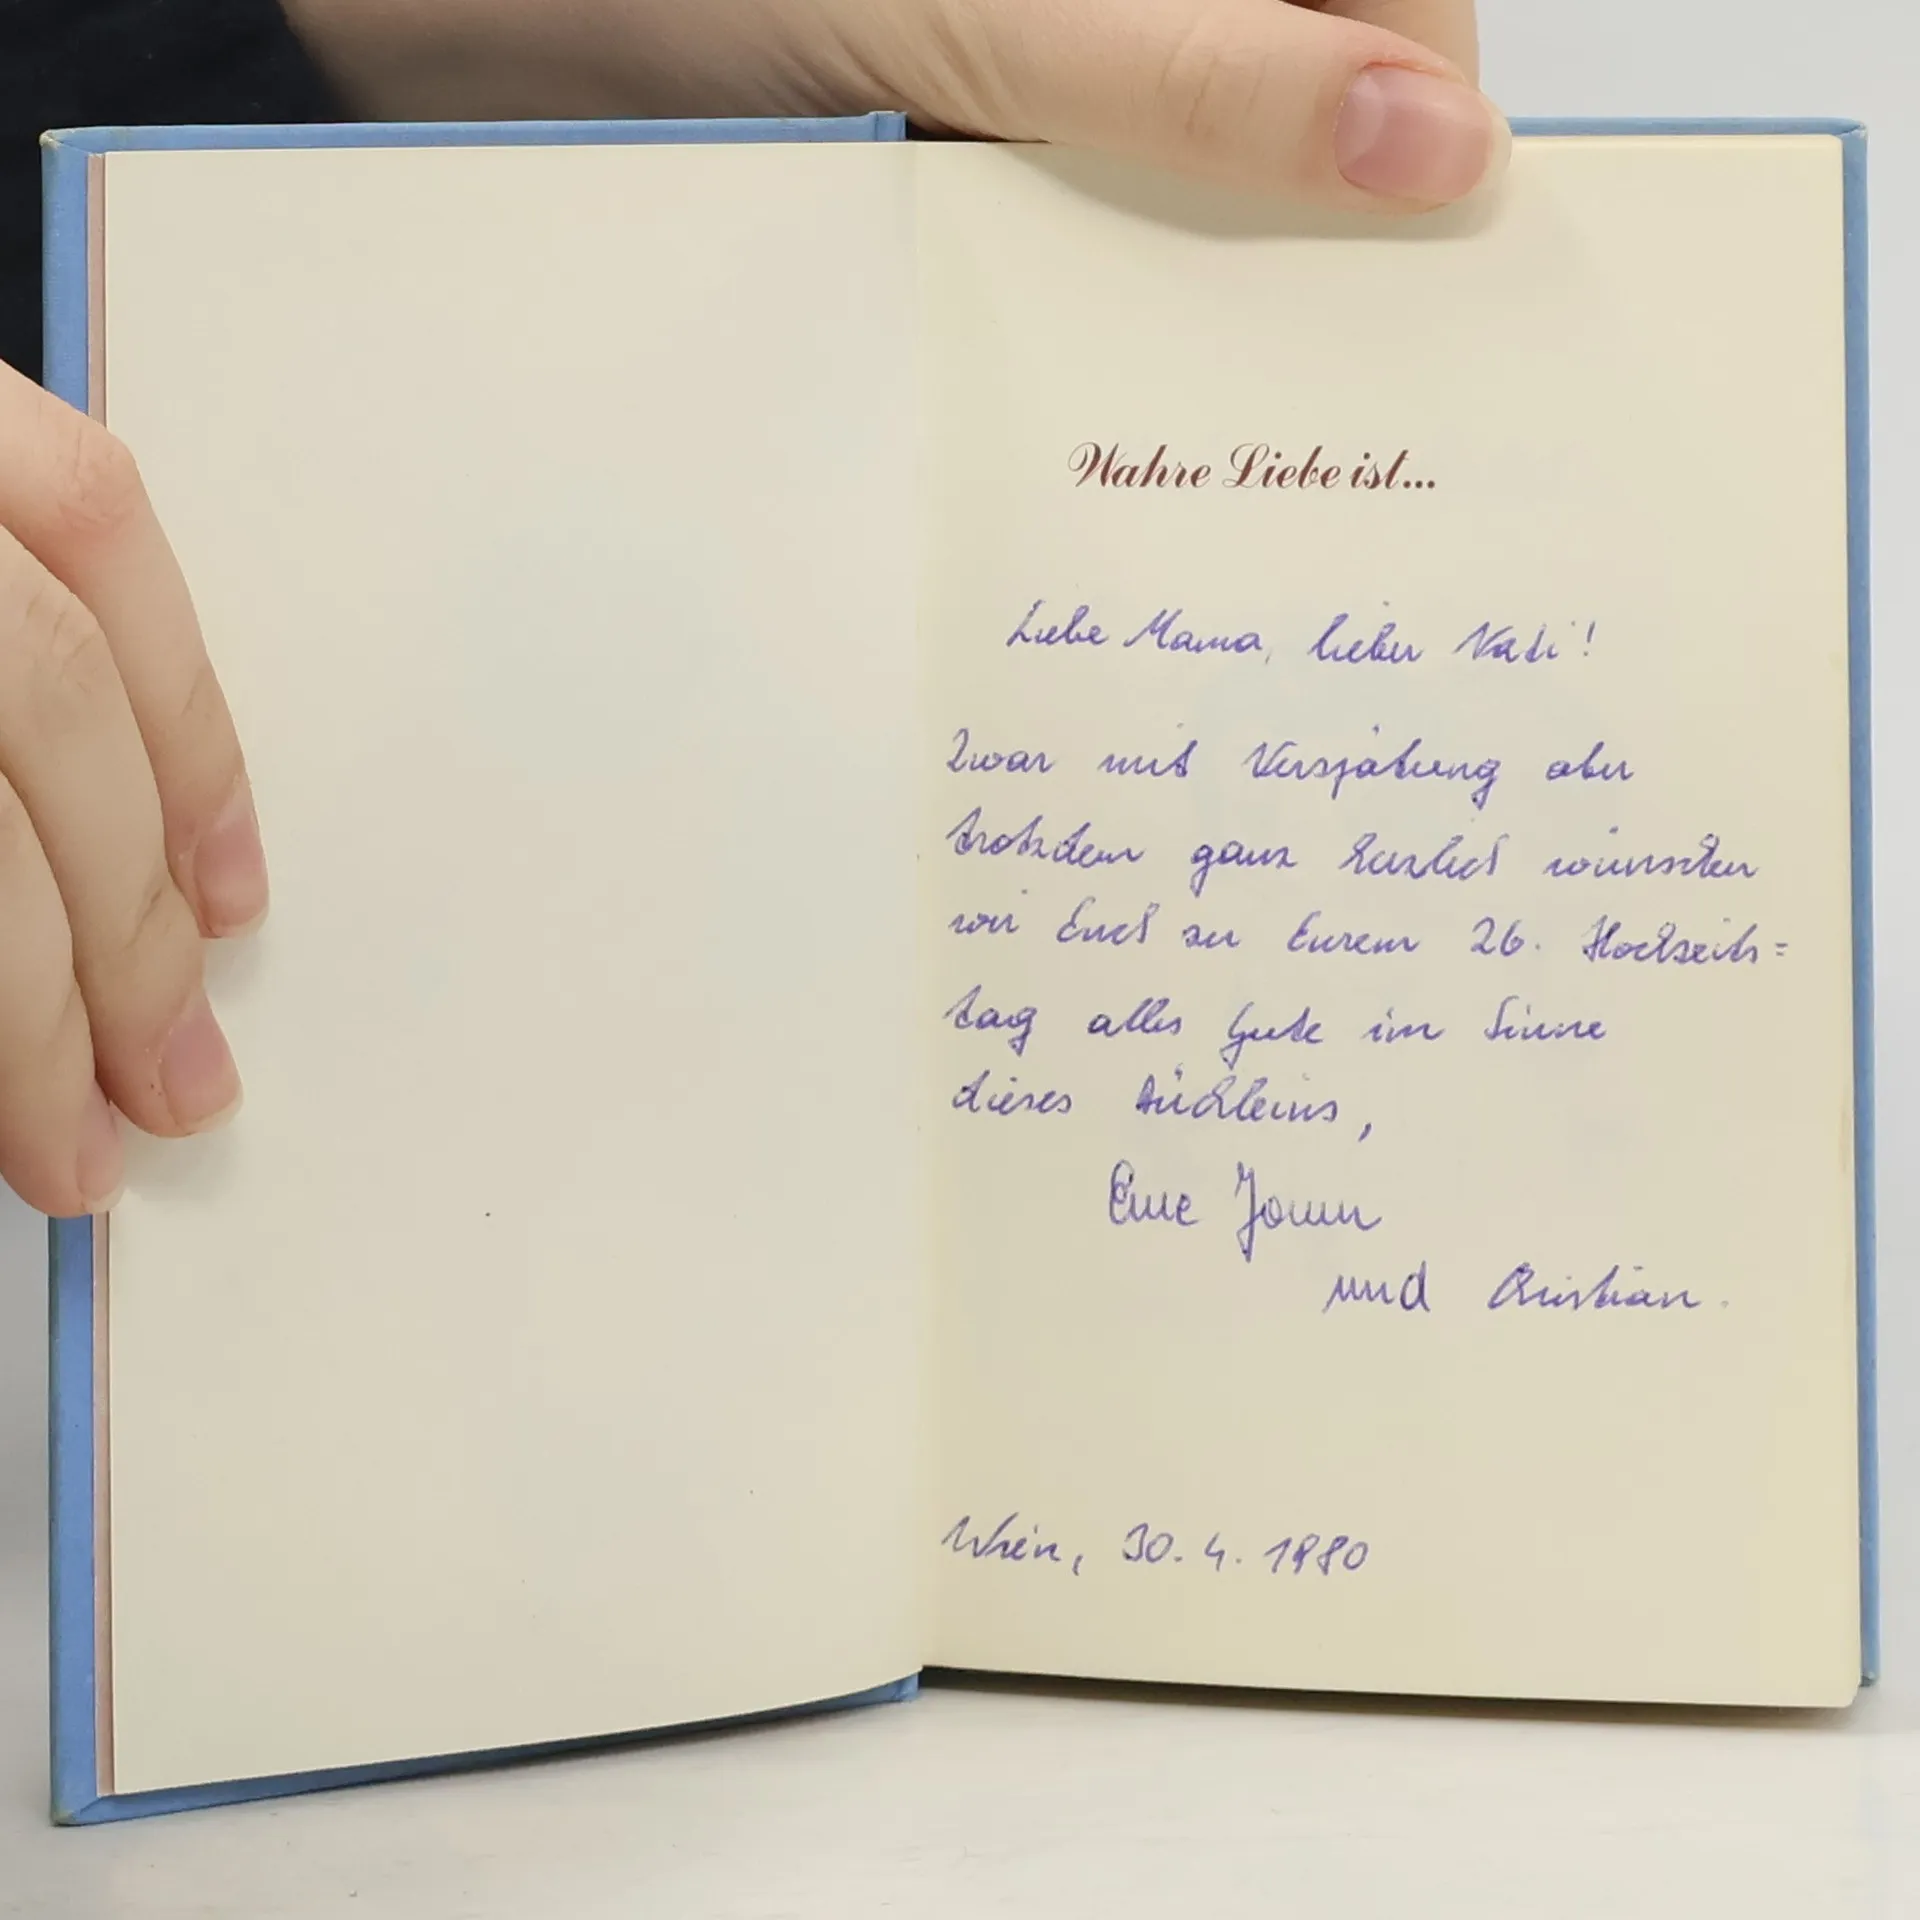 Wahre Liebe ist...
Liebe Mama, lieber Vati!
Zwar mit Verspätung aber
trotzdem ganz herzlich wünschen
wir Euch zu Eurem 26. Hochzeits=
tag alles Gute im Sinne
dieses Büchleins,
Eure
und Christian.
Wien, 30. 4. 1980